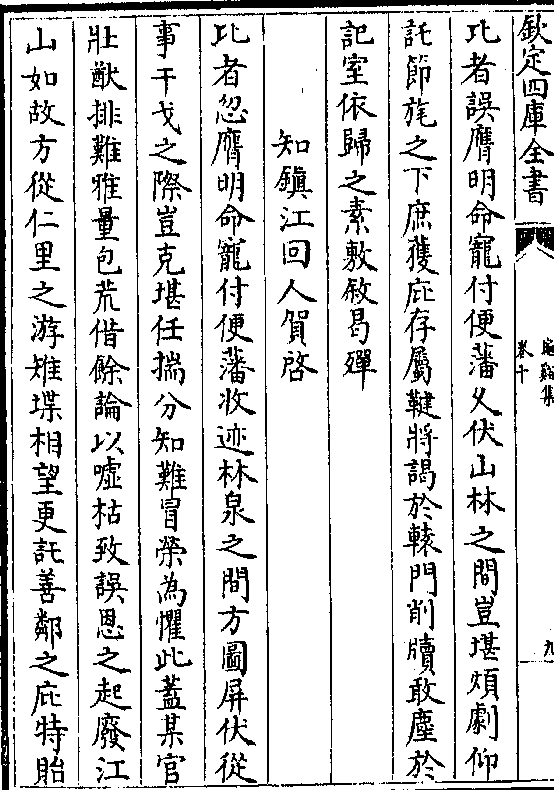 欽定四庫全書
卷十
九
比者誤膺明命寵付便藩久伏山林之間豈堪煩劇仰
託節旄之下庶獲庇存屬鞬將謁於轅門削牘敢塵於
記室依歸之素敷敘曷殫
知鎮江回人賀啓
比者忽膺明命寵付便藩收迹林泉之間方圖屏伏從
事干戈之際豈克堪任揣分知難冒榮為懼此蓋某官
壯猷排難雅量包荒借餘論以噓枯致誤恩之起廢江
山如故方從仁里之游雉堞相望更託善鄰之庇特貽